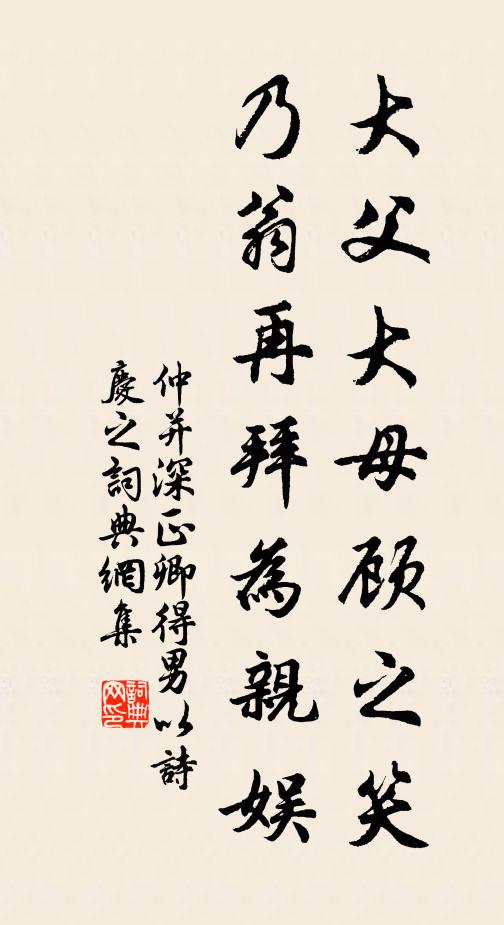 大父大母顾之笑
乃翁再拜為親娛
仲并深正卿得男以詩
慶之詞典網集
詞典网印